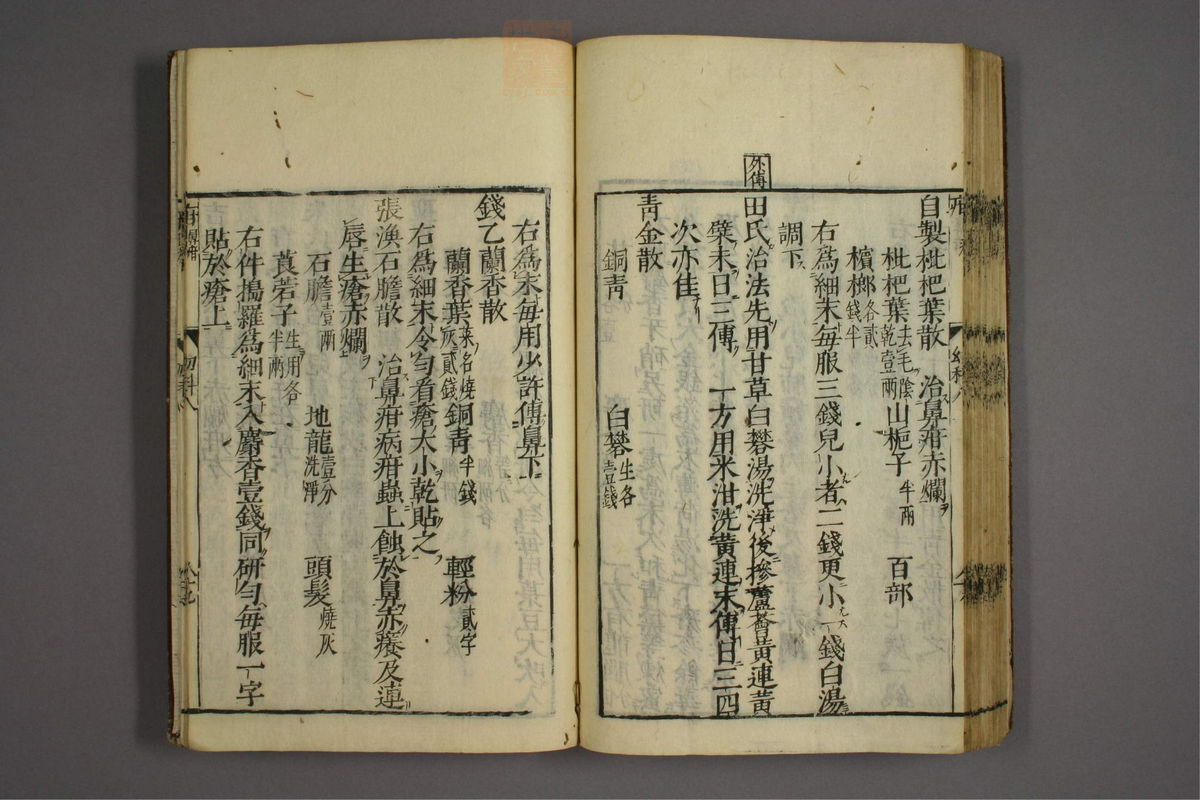 自製枇杷葉散　治鼻疳赤爛
枇杷葉去毛陰乾壹兩　山梔子半兩　百部
檳榔各貳錢半
右為細末每服三錢兒小者二錢更小一錢白湯
調下
外傅
田氏治法先用甘草白礬湯洗淨後摻蘆薈黃連黃
蘗末日三傅　一方用米泔洗黃連末傅日三四
次亦佳
青金散
銅青　白礬生各壹錢
右為末每用少許傅鼻下
錢乙蘭香散
蘭香葉菜名燒灰貳錢　銅青半錢　輕粉貳字
右為細末令勻看瘡大小乾貼之
張渙石膽散　治鼻疳病疳蟲上蝕於鼻赤癢及連
唇生瘡赤爛
石膽壹兩　地龍壹分洗淨　頭髮燒灰
莨菪子生用各半兩
右件搗羅為細末入麝香壹錢同研勻每服一字
貼於瘡上
幼科八